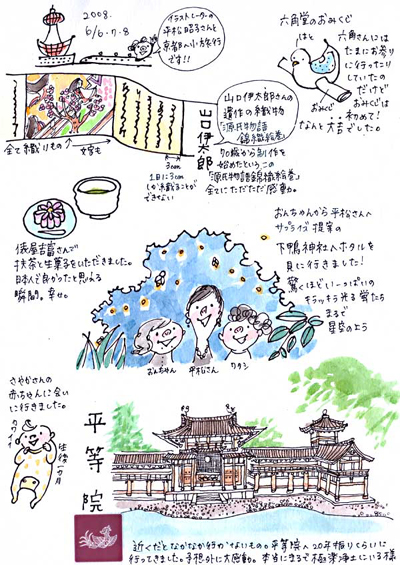 2008.
6/6・7・8
イラストレーターの
平松昭子さんと
京都へ小旅行
です!!
六角堂のおみくじ
はと
六角さんには
たまにお参り
に行ったり
していたの
だけど
おみくじは
初めて!
なんと大吉でした。
おみくじ
山口伊太郎
山口伊太郎さんの
遺作の織物
「源氏物語
錦織絵巻」
70歳から制作を
始めたというこの
「源氏物語錦織絵巻」
全てにただただ感動。
全て織りもの
文字も
3cm
1日に3cm
しか織ることが
できない
俵屋吉富さんで
抹茶と生菓子をいただきました。
日本人で良かったと思える
瞬間。幸せ。
おんちゃんから平松さんへ
サプライズ提案の
下鴨神社へホタルを
見に行きました!
驚くほどいっぱいの
キラッキラ光る蛍たち
まるで
星空のよう
おんちゃん
平松さん
ワタシ
さやかさんの
赤ちゃんに会い
に行きました。
カワイイ
生後一カ月
平等院
近くだとなかなか行かないもの。平等院へ20年振りくらいに
行ってきました。予想外に大感動。本当にまるで極楽浄土にいる様